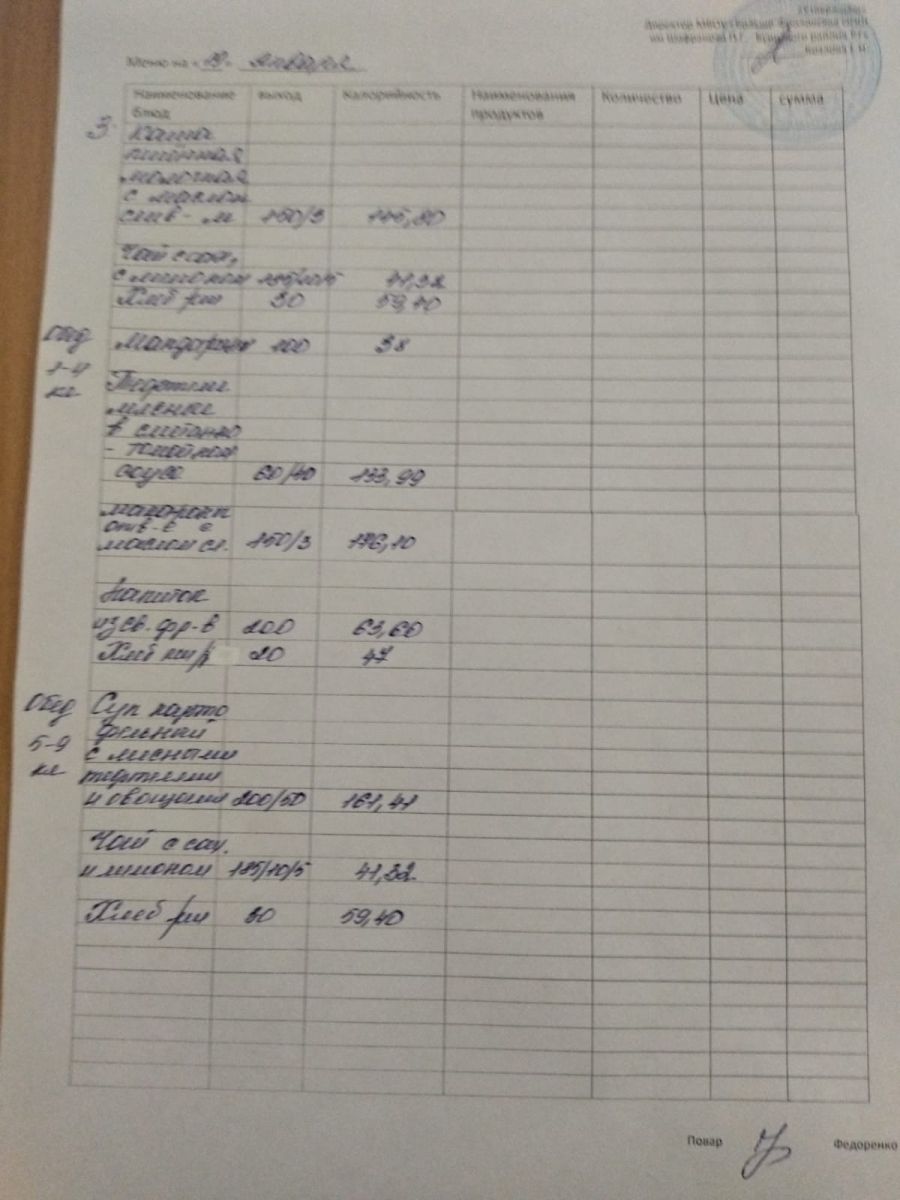 Утверждаю
Директор
Меню на « 19 » января
Наименование блюд выход Калорийность Наименования продуктов Количество Цена сумма
З. Каша
пшённая
молочная
с маслом
слив-м 150/3
Чай с сах.
с лимоном 185/10/5 41,32
Хлеб рш 30 59,40
Обед 1-4 кл
100 38
Тефтели
мясные
в сметанно
- томатном
соусе 60/40 133,99
макароны
отв-е с
маслом сл. 150/3 176,10
Напиток
из св. фр-в 200 63,60
Хлеб 20 47
Обед 5-9 кл
Суп карто
фельный
с мясными
тефтелями
и овощами 200/50 161,41
Чай с сах.
и лимоном 185/10/5 41,32
Хлеб рш 30 59,40
Повар Федоренко